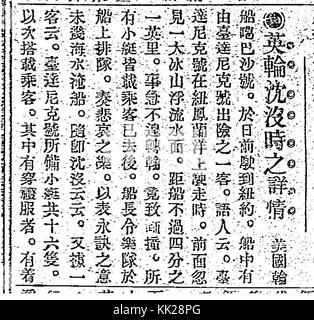 英輪沈沒時之詳情 美國翰
船喘巴沙號。於日前駛到紐約。船中有
由臺達尼克號出險之一客。語人云。臺
達尼克號在紐鳳蘭洋上駛走時。前面忽
見一大冰山浮流水面。距船不過四分之
一英里。事急不遑轉輪。竟致面撞。所
有小艇皆載乘客已去後。船長令樂隊於
船上排隊。奏悲哀之樂。以表永訣之意
未幾海水淹船。隨即沈沒云云。又據一
客云。臺達尼克號所備小艇共十六隻。
以次搭載乘客。其中有穿禮服者。有着
alamy
KK28PG